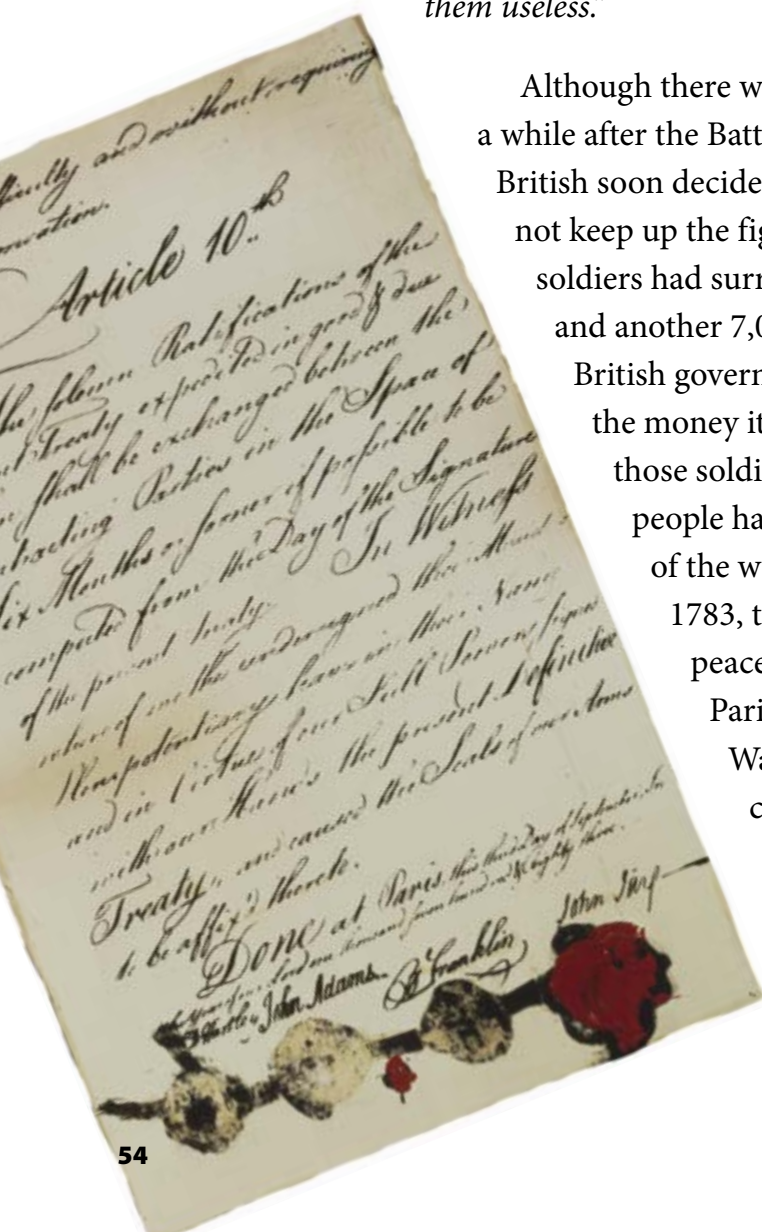 them useless."
Although there w
a while after the Batt
British soon decide
not keep up the fig
soldiers had surr
and another 7,0
British govern
the money it
those soldi
people ha
of the w
1783, t
peace
Pari
Wa
c
fficulty and without requiring
Article 10th
solemn Ratifications of the
Treaty expedited in good & due
shall be exchanged between the
tracting Parties in the Space of
ix Months or sooner if possible to be
computed from the Day of the Signature
of the present Treaty. In Witness
whereof we the undersigned their
and in Virtue of our Full Powers
with our Hands the present Definitive
Treaty, and caused the Seals of our Arms
to be affix'd thereto.
Done at Paris, this third Day of September, In
eighty three.
John Adams B Franklin John Jay
54